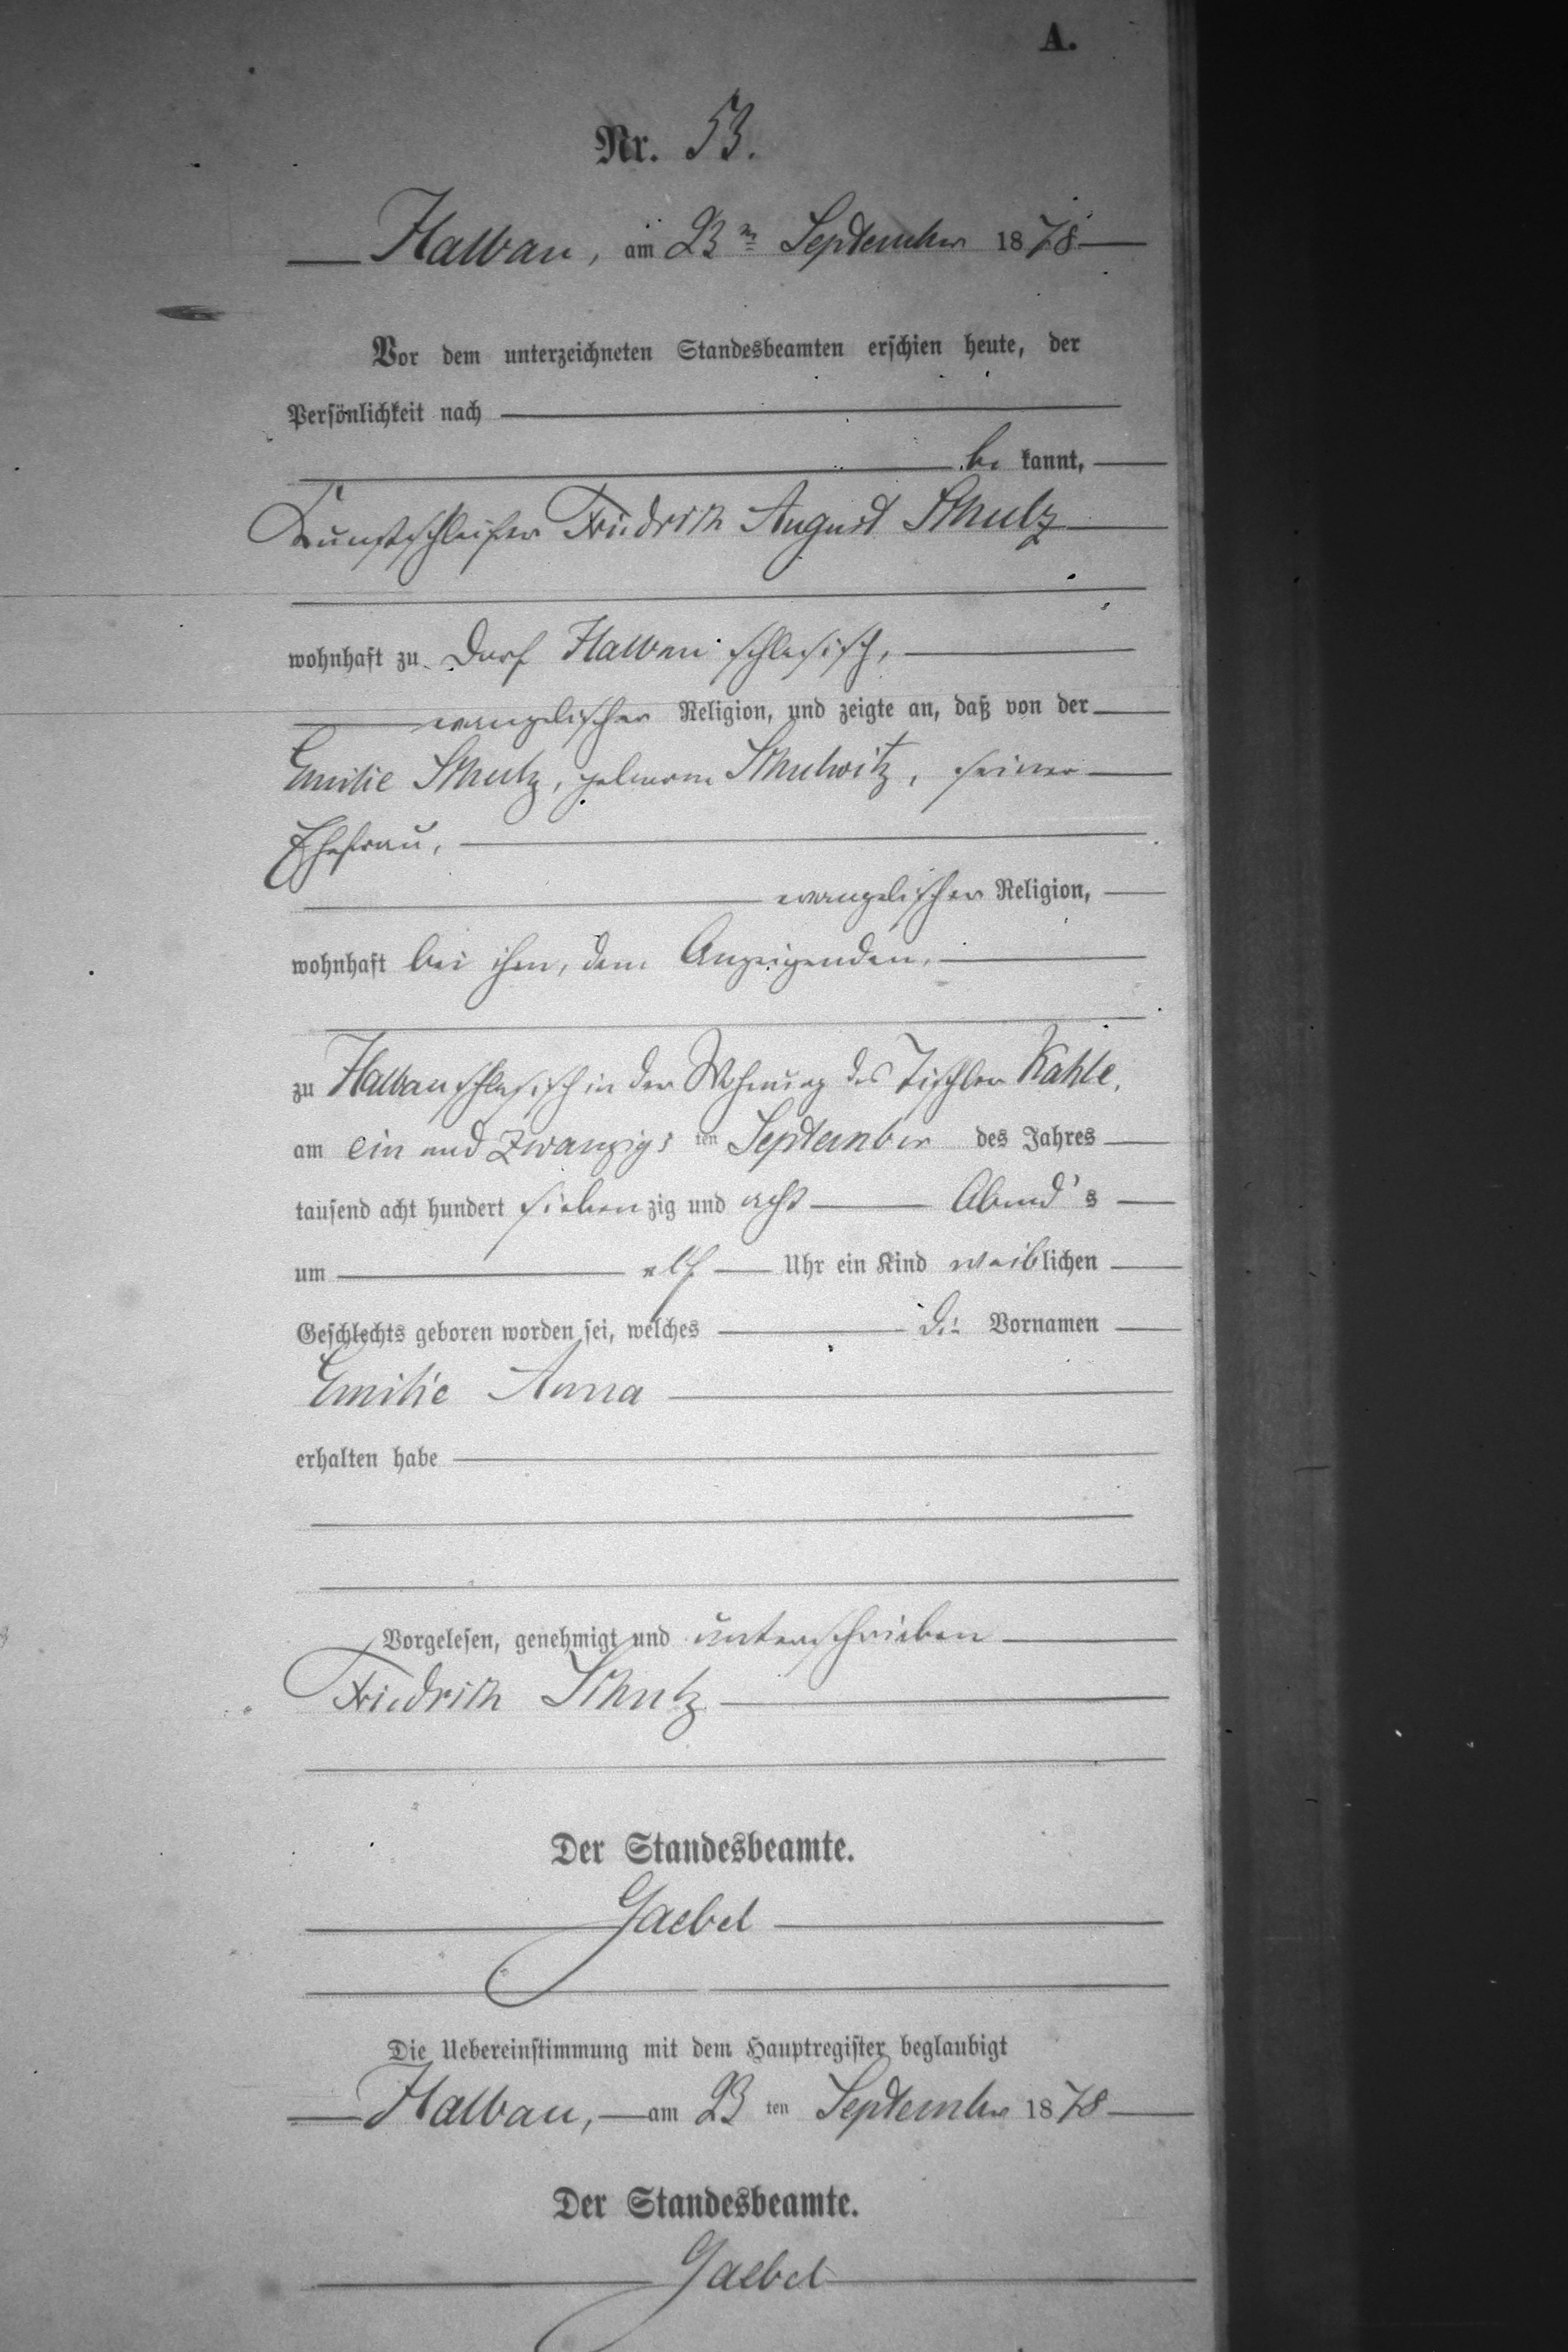 A.
Nr. 53.
Halbau, am 23ten September 1878
Vor dem unterzeichneten Standesbeamten erschien heute, der
Persönlichkeit nach
be kannt,
Kunstschleifer Friedrich August Schulz
wohnhaft zu Dorf Halbau schlesisch,
evangelischer Religion, und zeigte an, daß von der
Emilie Schulz, geborene Schulwitz, seiner
Ehefrau,
evangelischer Religion,
wohnhaft bei ihm, dem Anzeigenden,
zu Halbau schlesisch in der Wohnung des Tischler Kahle,
am ein und zwanzigsten September des Jahres
tausend acht hundert siebenzig und acht Abend's
um elf Uhr ein Kind weiblichen
Geschlechts geboren worden sei, welches die Vornamen
Emilie Anna
erhalten habe
Vorgelesen, genehmigt und unterschrieben
Friedrich Schulz
Der Standesbeamte.
Gaebel
Die Uebereinstimmung mit dem Hauptregister beglaubigt
Halbau, am 23 ten September 1878
Der Standesbeamte.
Gaebel